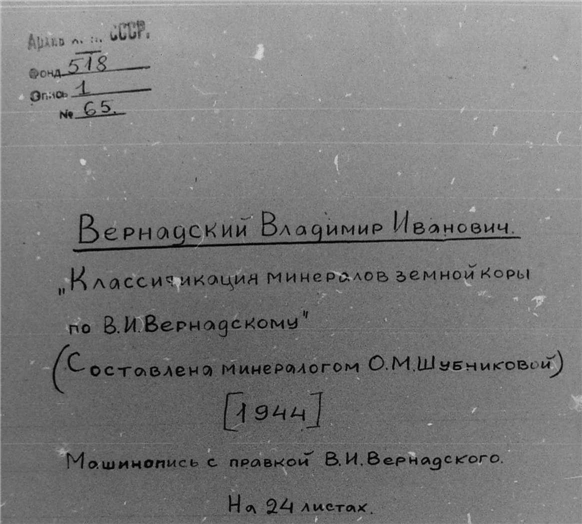 Архив А. Н. СССР.
Фонд 518
Опись 1
№ 65.
Вернадский Владимир Иванович.
„Классификация минералов земной коры
по В.И.Вернадскому"
(Составлена минералогом О.М.Шубниковой)
[1944]
Машинопись с правкой В.И.Вернадского.
На 24 листах.